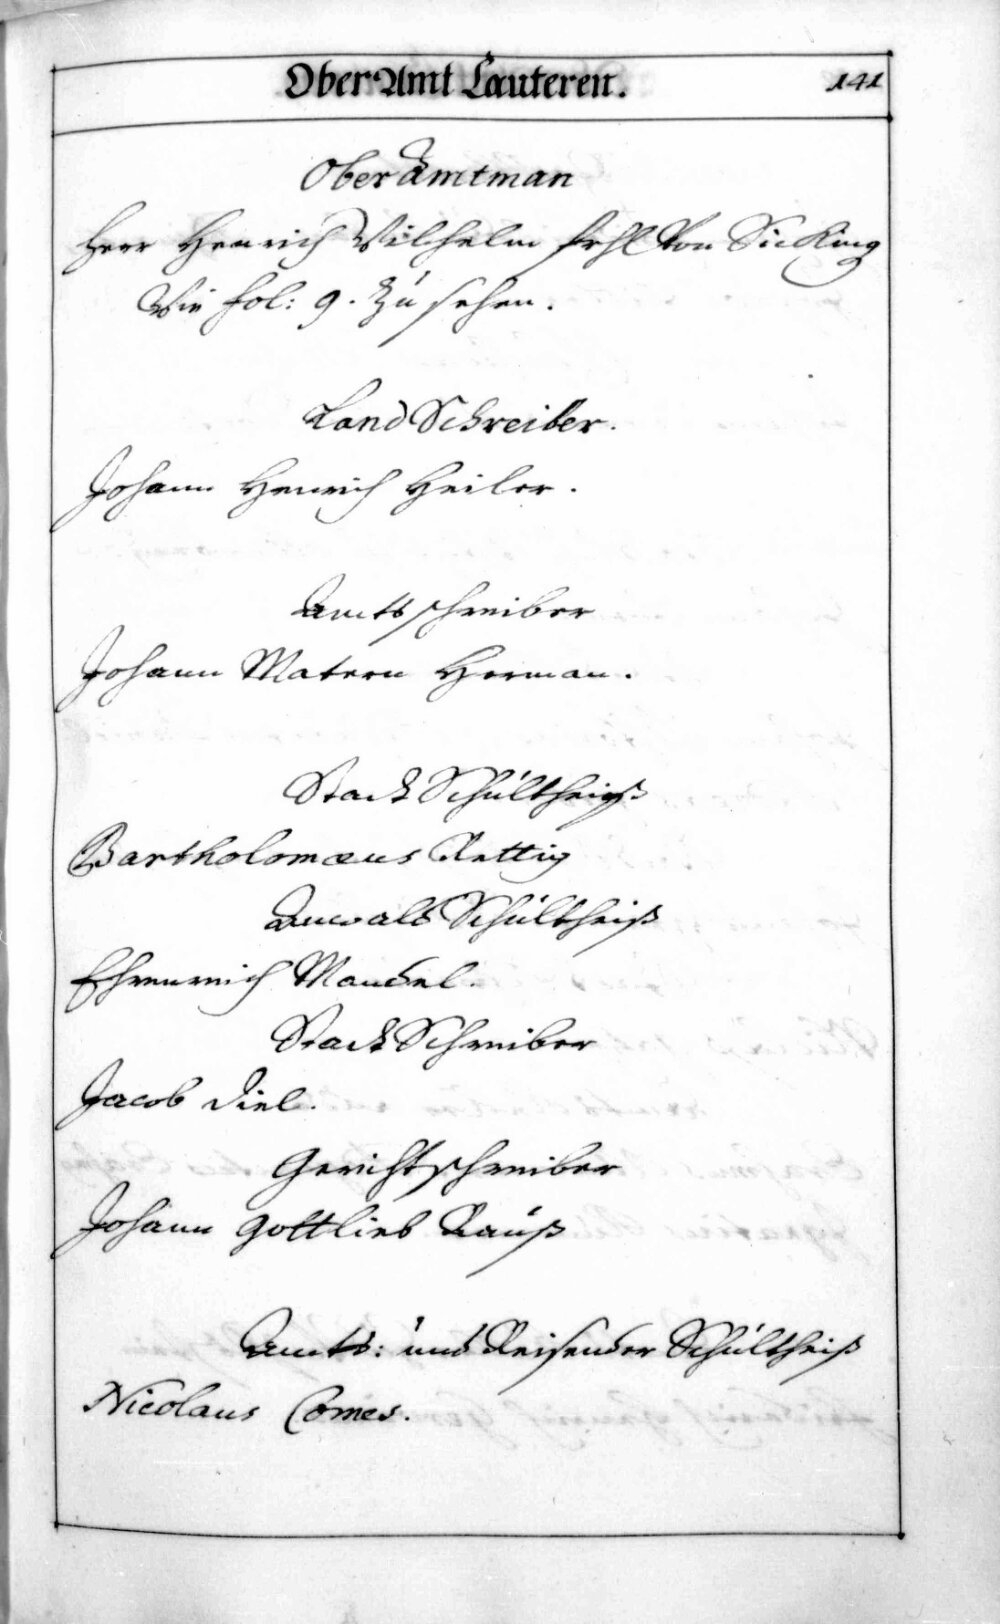 OberAmt Lauteren.
141
OberAmtman
Herr Henrich Wilhelm frhl Von Sicking
Wie fol: 9. zu sehen.
Land Schreiber.
Johann Henrich Heiler.
Amts schreiber
Johann Matern Herman.
Statt Schultheiß
Bartholomæus Rettig
Anwalt Schultheiß
Ehrenreich Mandel.
Statt Schreiber
Jacob Diel.
Gerichtschreiber
Johann Gottlieb Rauß
Amts: und Reisender Schultheiß
Nicolaus Comes.